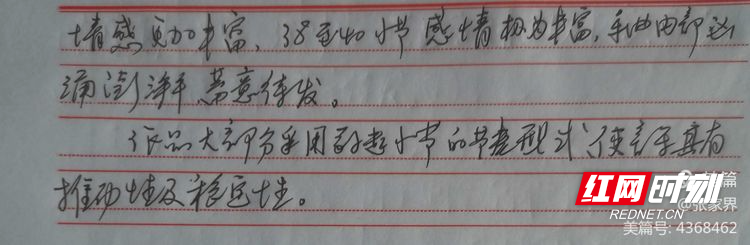 情感更加丰富，38至40小节感情极为丰富，乐曲内部汹
涌澎湃，蓄意待发。
作品大部分采用弱起小节的节奏型式，使音乐具有
推动性及稳定性。
美篇
@张家界
红网时刻
REDNET.CN
美篇号: 4368462